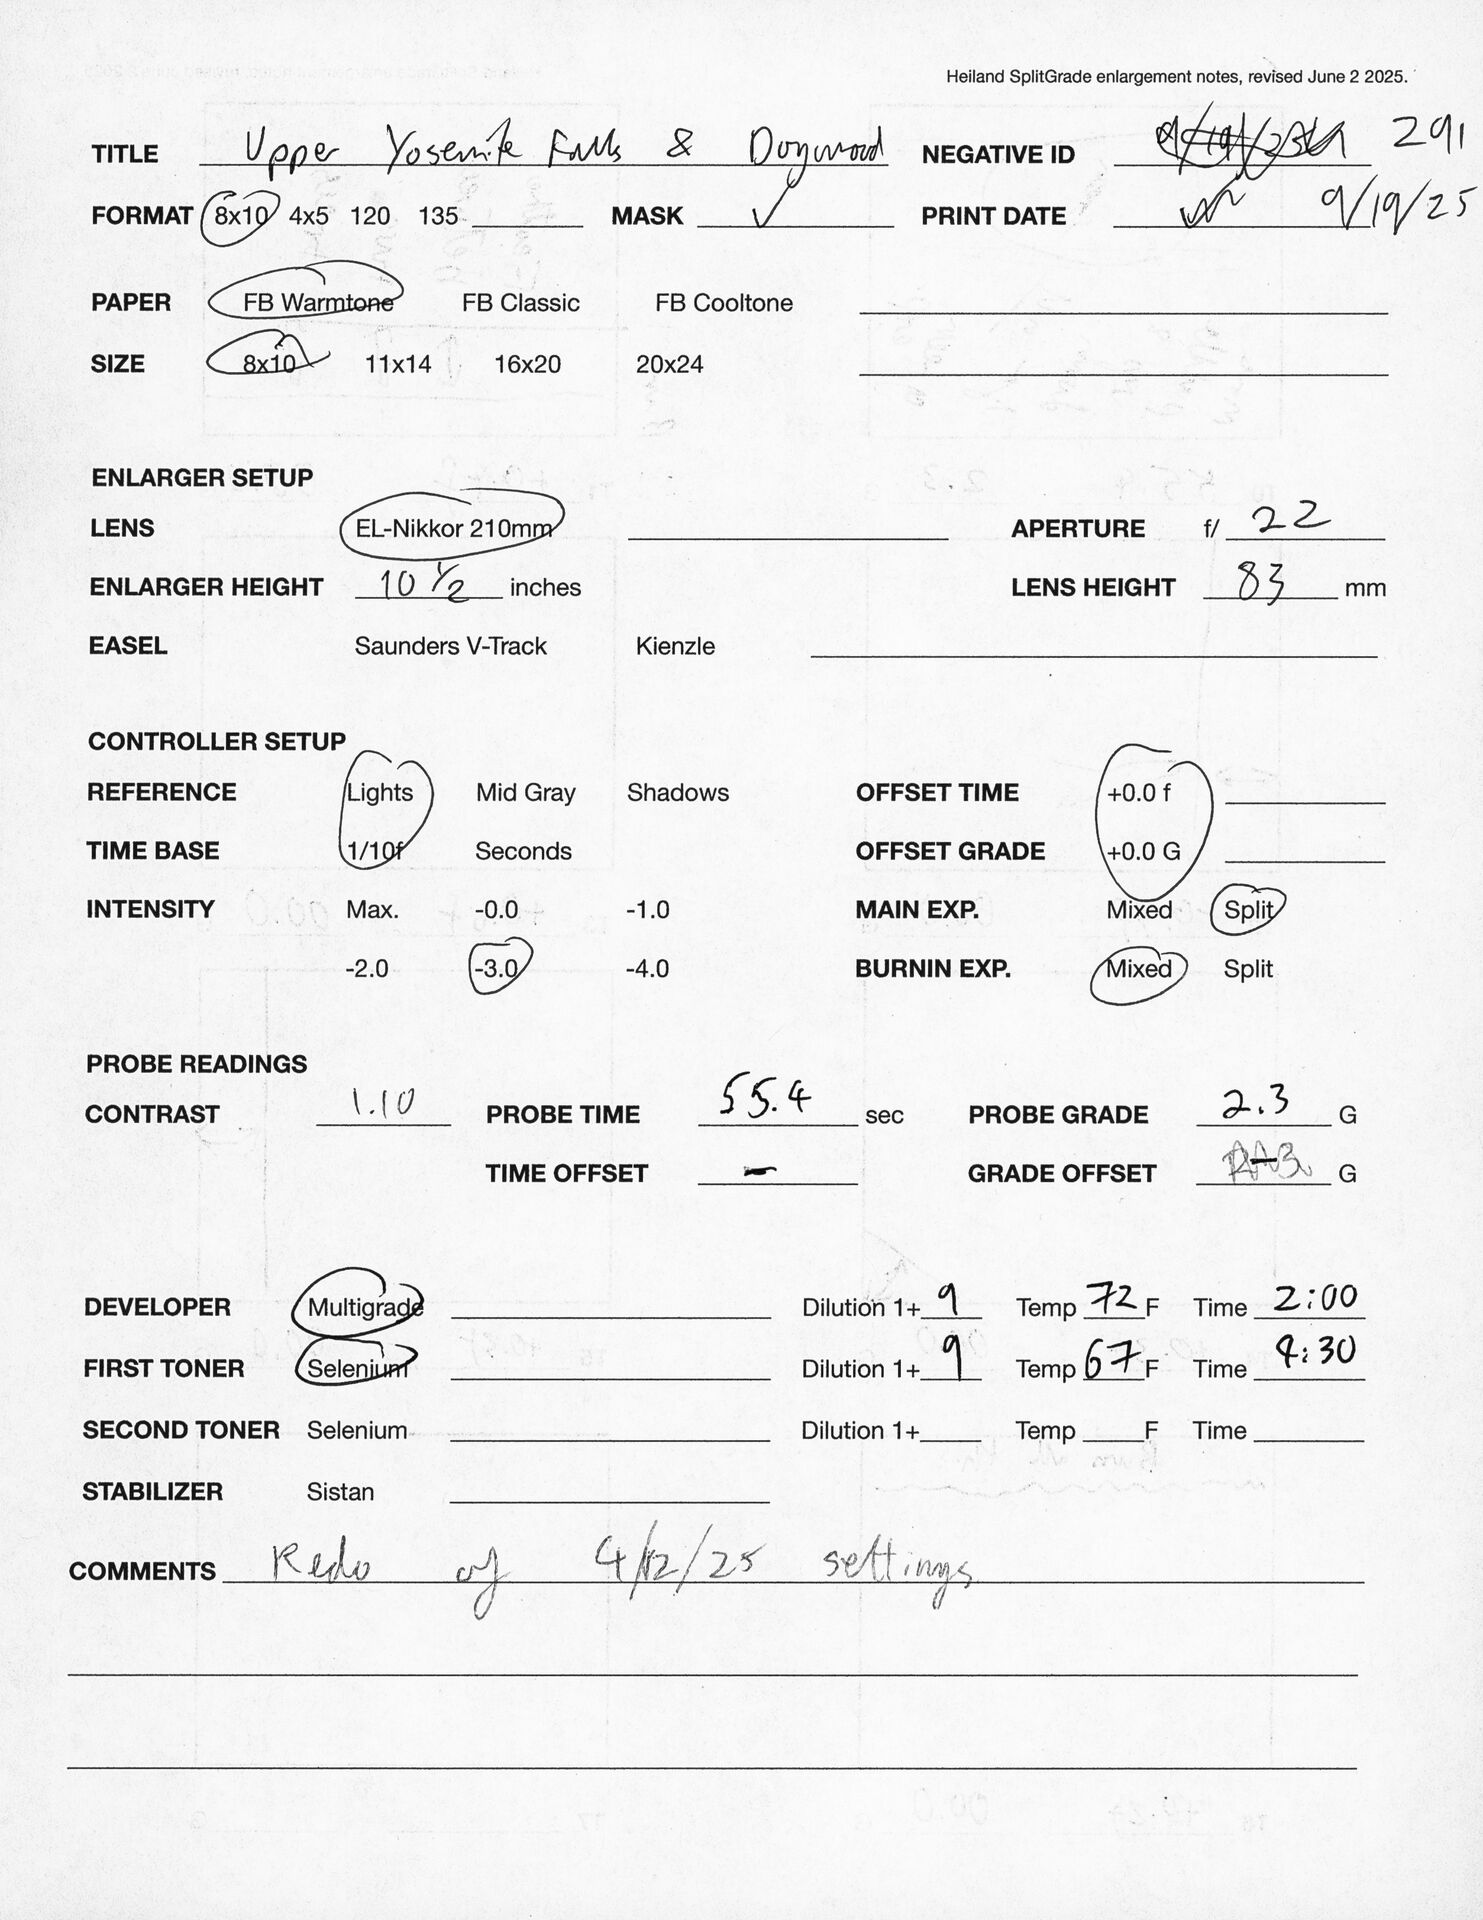 Heiland SplitGrade enlargement notes, revised June 2 2025.
TITLE Upper Yosemite Falls & Dogwood NEGATIVE ID 291
FORMAT 8x10 4x5 120 135 MASK ✓ PRINT DATE 9/19/25
PAPER FB Warmtone FB Classic FB Cooltone
SIZE 8x10 11x14 16x20 20x24
ENLARGER SETUP
LENS EL-Nikkor 210mm APERTURE f/ 22
ENLARGER HEIGHT 10 1/2 inches LENS HEIGHT 83 mm
EASEL Saunders V-Track Kienzle
CONTROLLER SETUP
REFERENCE Lights Mid Gray Shadows OFFSET TIME +0.0 f
TIME BASE 1/10f Seconds OFFSET GRADE +0.0 G
INTENSITY Max. -0.0 -1.0 MAIN EXP. Mixed Split
-2.0 -3.0 -4.0 BURNIN EXP. Mixed Split
PROBE READINGS
CONTRAST 1.10 PROBE TIME 55.4 sec PROBE GRADE 2.3 G
TIME OFFSET - GRADE OFFSET - G
DEVELOPER Multigrade Dilution 1+ 9 Temp 72 F Time 2:00
FIRST TONER Selenium Dilution 1+ 9 Temp 67 F Time 4:30
SECOND TONER Selenium Dilution 1+ Temp F Time
STABILIZER Sistan
COMMENTS Redo of 4/12/25 settings